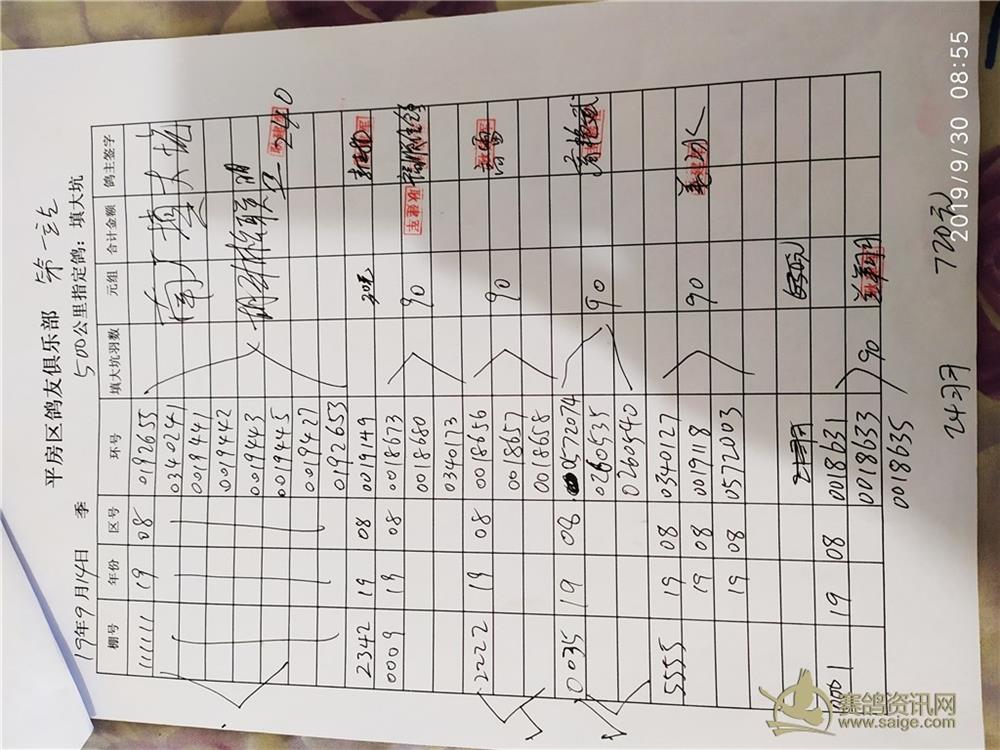 平房区鸽友俱乐部 第一站
19年9月14日 季 500公里指定鸽：填大坑
棚号 年份 区号 环号 填大坑羽数 元组 合计金额 鸽主签字
1111111 19 08 0192655
0340241
0019441
0019442
0019443
0019445 240
0019427
0192653
2342 19 08 0019149
0009 19 08 0018673 90
0018680
0340173
2222 19 08 0018656 90
0018657
0018658
0035 19 08 0572074 90
0260535
0260540
5555 19 08 0340127
19 08 0019118 90
19 08 0572003
0001 19 08 0018631
0018633 90
0018635
24羽 720元
2019/9/30 08:55
赛鸽资讯网
www.saige.com